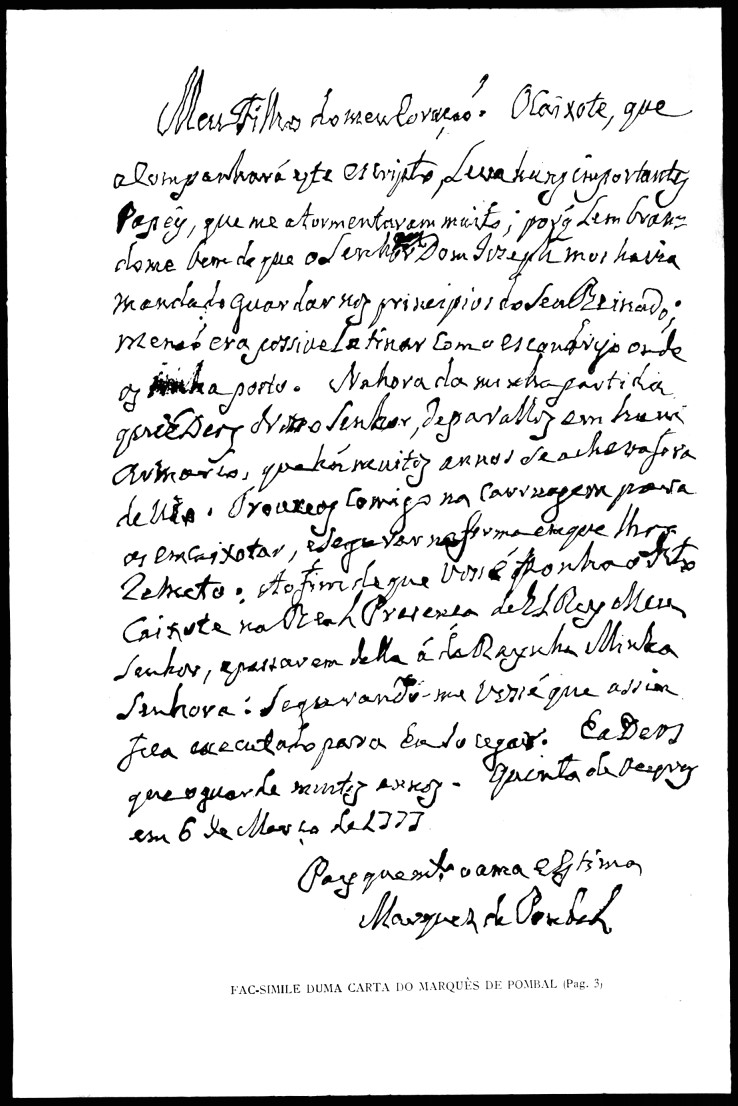 Meu Filho do meu Coração. O Caixote, que
acompanhará este escripto, Leva huns importantes
Papeis, que me atormentavam muito; porq̃ Lembran=
dome bem de que o Senhor Dom Jozeph mos havia
mandado guardar nos principios do Seu Reinado;
me não era possivel atinar com o escondrijo onde
os tinha posto. Na hora da minha partida
quiz Deos Nosso Senhor, deparallos em hum
Armario, que há muitos annos se achava fora
de Uso. Trouxeos comigo na carruagem para
os encaixotar, e Segurar na forma em que lhos
Remeto. Ao fim de que ponha o dito
Caixote na Real Prezença de El Rey Meu
Senhor, e passarem della á da Raynha Minha
Senhora: Segurando-me que assim
fica executado para Eu socegar. E a Deos
que o guarde muitos annos. Quinta de Oeyras
em 6 de Março de 1777
Pay que m.to o ama e Estima
Marquez de Pombal
FAC-SIMILE DUMA CARTA DO MARQUÊS DE POMBAL (Pag. 3)